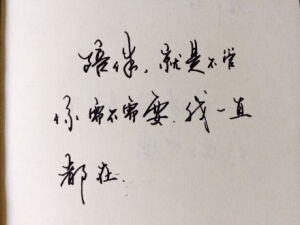 陪伴，就是不管
你需不需要，我一直
都在.